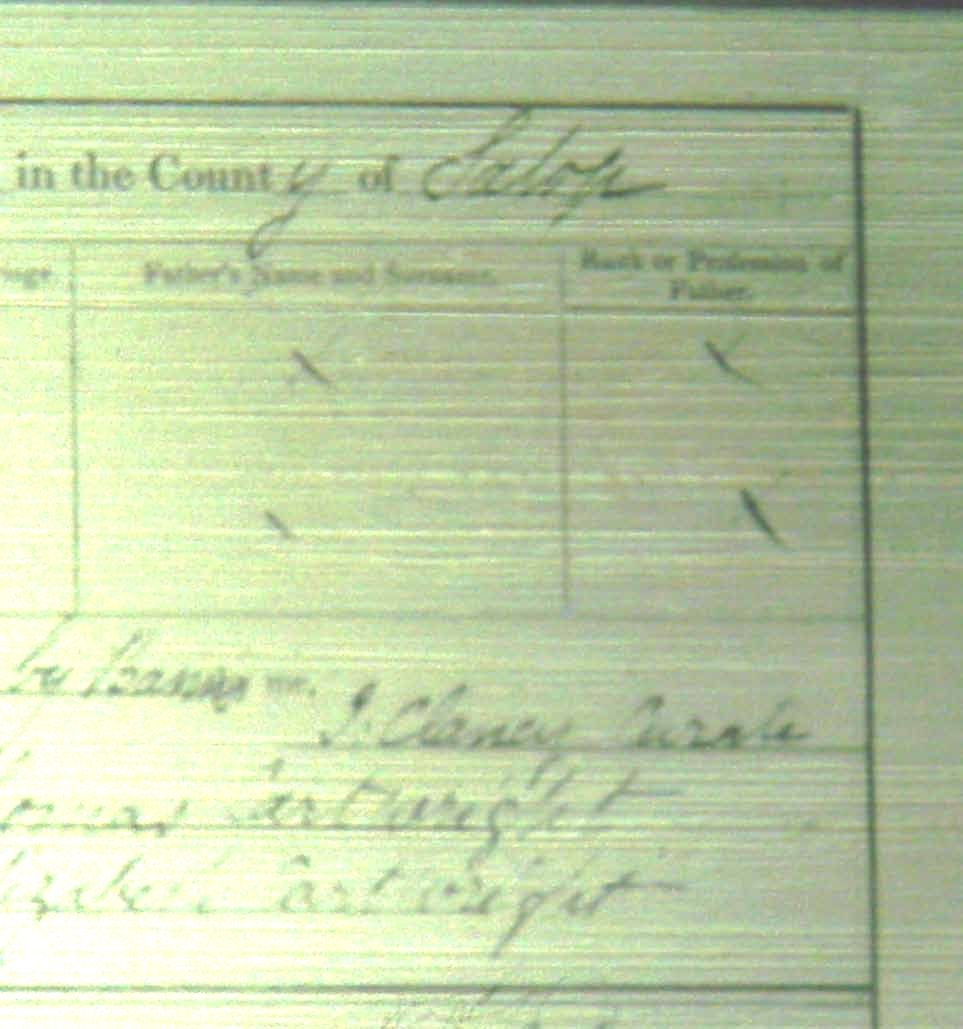 in the County of Salop
Father's Name and Surname.
Rank or Profession of
Father.
by Banns me, J. Clancy Curate
Cartwright
Cartwright